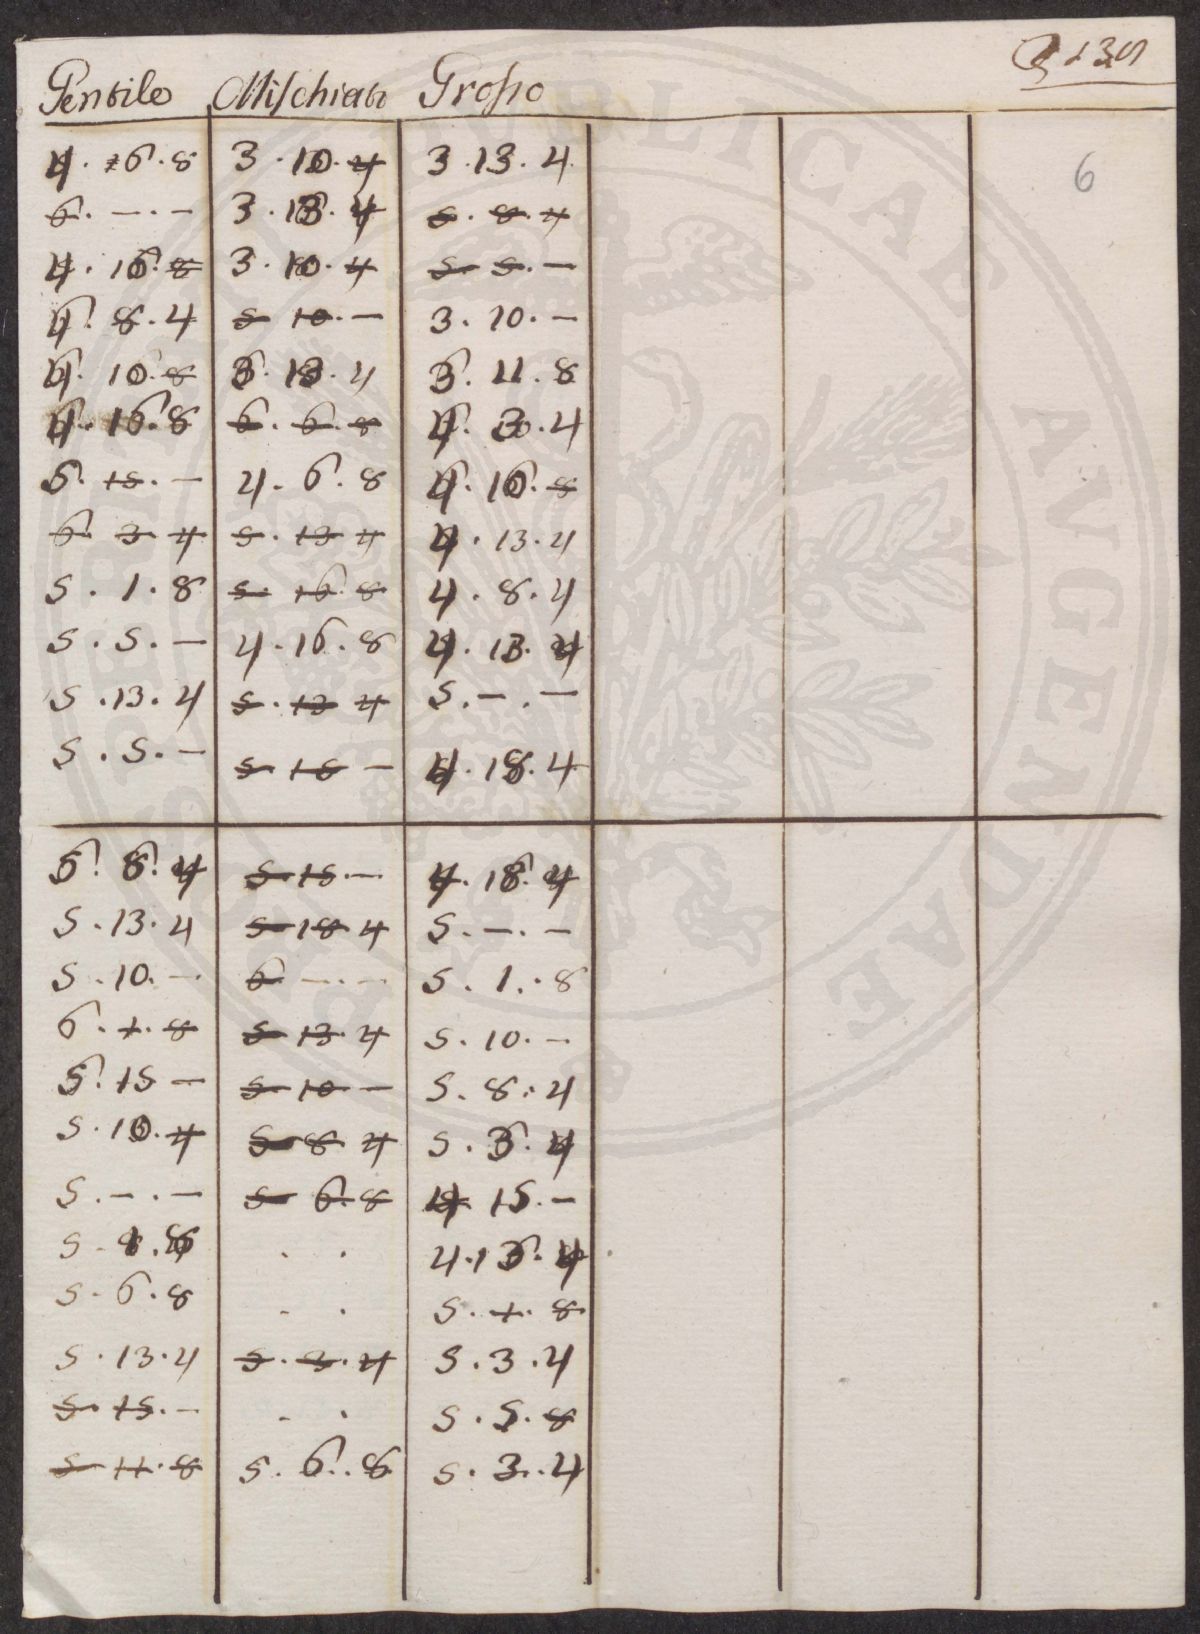 Gentile Mischiato Grosso
6
4. 16. 8 3. 10. 4 3. 13. 4
6. — . — 3. 13. 4 5. 8. 4
4. 16. 8 3. 10. 4 5. 5. —
8. 4 5. 10. — 3. 10. —
10. 8 13. 4 3. 11. 8
4. 16. 8 6. 6. 8 4. 4
15. — 4. 6. 8 4. 16. 8
6. 3. 4 5. 13. 4 4. 13. 4
5. 1. 8 5. 16. 8 4. 8. 4
5. 5. — 4. 16. 8 4. 13. 4
5. 13. 4 5. 13. 4 5. — . —
5. 5. — 5. 15. — 4. 18. 4
4 5. 15. — 4. 18. 4
5. 13. 4 5. 18. 4 5. — . —
5. 10. — 6. — . — 5. 1. 8
6. 1. 8 5. 13. 4 5. 10. —
15. — 5. 10. — 5. 8. 4
5. 10. 4 5. 8. 4 5. 3. 4
5. — . — 5. 6. 8 4. 15. —
5. . . 4. 13. 4
5. 6. 8 . . 5. 1. 8
5. 13. 4 5. 3. 4 5. 3. 4
5. 15. — . . 5. 5. 8
5. 11. 8 5. 6. 8 5. 3. 4
PUBLICAE AVGENDAE